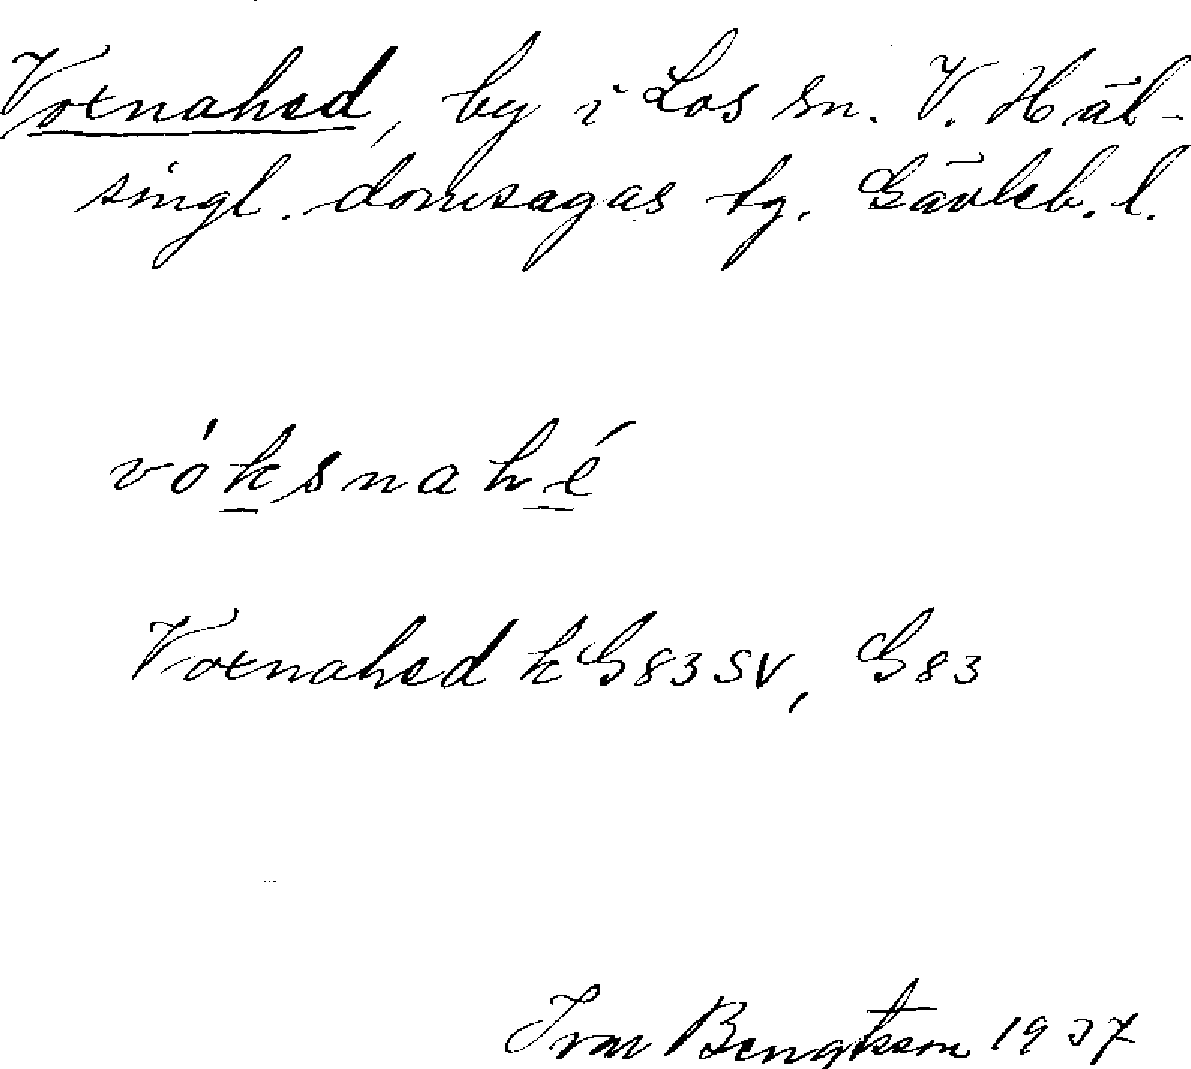 Voxnahed, by i Los sn. V. Häl-
singl. domsagas tg. Gävleb. l.
vóksnahé
Voxnahed k G83SV, G83
Ivar Bengtsson 1937